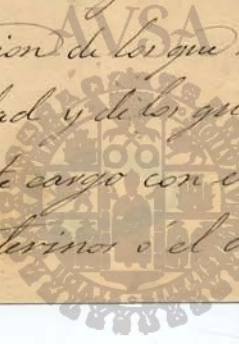 AVSA
cion de los que
dad y de los qu
te cargo con
terinos ó el